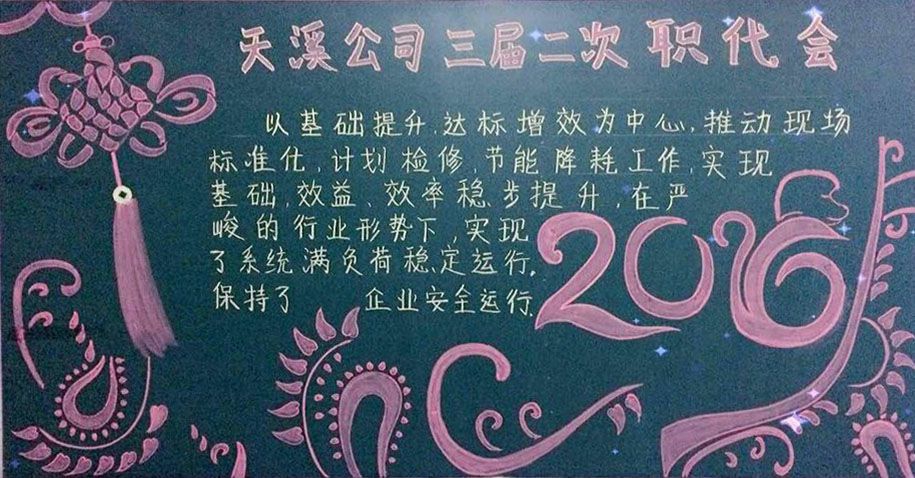 天溪公司三届二次职代会
以基础提升、达标增效为中心,推动现场
标准化,计划检修,节能降耗工作,实现
基础,效益、效率稳步提升,在严
峻的行业形势下,实现
了系统满负荷稳定运行,
保持了 企业安全运行.
2016